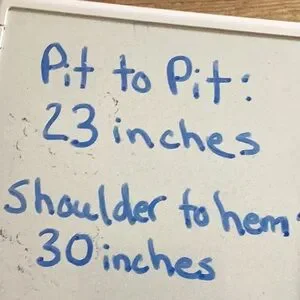 Pit to Pit:
23 inches
Shoulder to hem:
30 inches